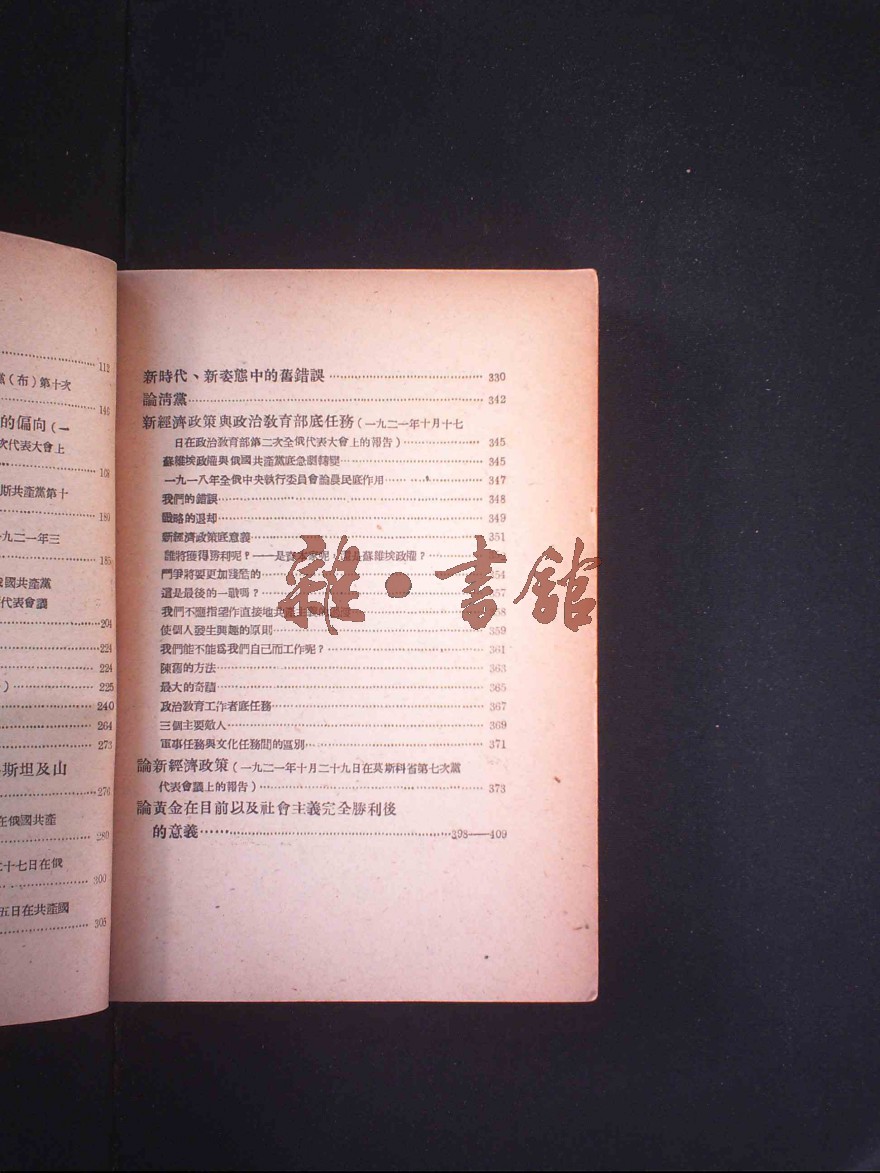 112
黨（布）第十次
146
的偏向（一
次代表大會上
168
斯共產黨第十
180
九二一年三
185
俄國共產黨
代表會議
204
224
224
）225
240
264
273
斯坦及山
276
在俄國共產
289
二十七日在俄
300
五日在共產國
305
新時代、新姿態中的舊錯誤 330
論清黨 342
新經濟政策與政治敎育部底任務（一九二一年十月十七
日在政治敎育部第二次全俄代表大會上的報告） 345
蘇維埃政權與俄國共產黨底急劇轉變 345
一九一八年全俄中央執行委員會論農民底作用 347
我們的錯誤 348
戰略的退却 349
新經濟政策底意義 351
誰將獲得勝利呢？——是資本家呢，還是蘇維埃政權？
鬥爭將要更加殘酷的 354
這是最後的一戰嗎？ 357
我們不應指望作直接地共產主義的
使個人發生興趣的原則 359
我們能不能爲我們自己而工作呢？ 361
陳舊的方法 363
最大的奇蹟 365
政治敎育工作者底任務 367
三個主要敵人 369
軍事任務與文化任務間的區別 371
論新經濟政策（一九二一年十月二十九日在莫斯科省第七次黨
代表會議上的報告） 373
論黃金在目前以及社會主義完全勝利後
的意義 398——409
雜·書館